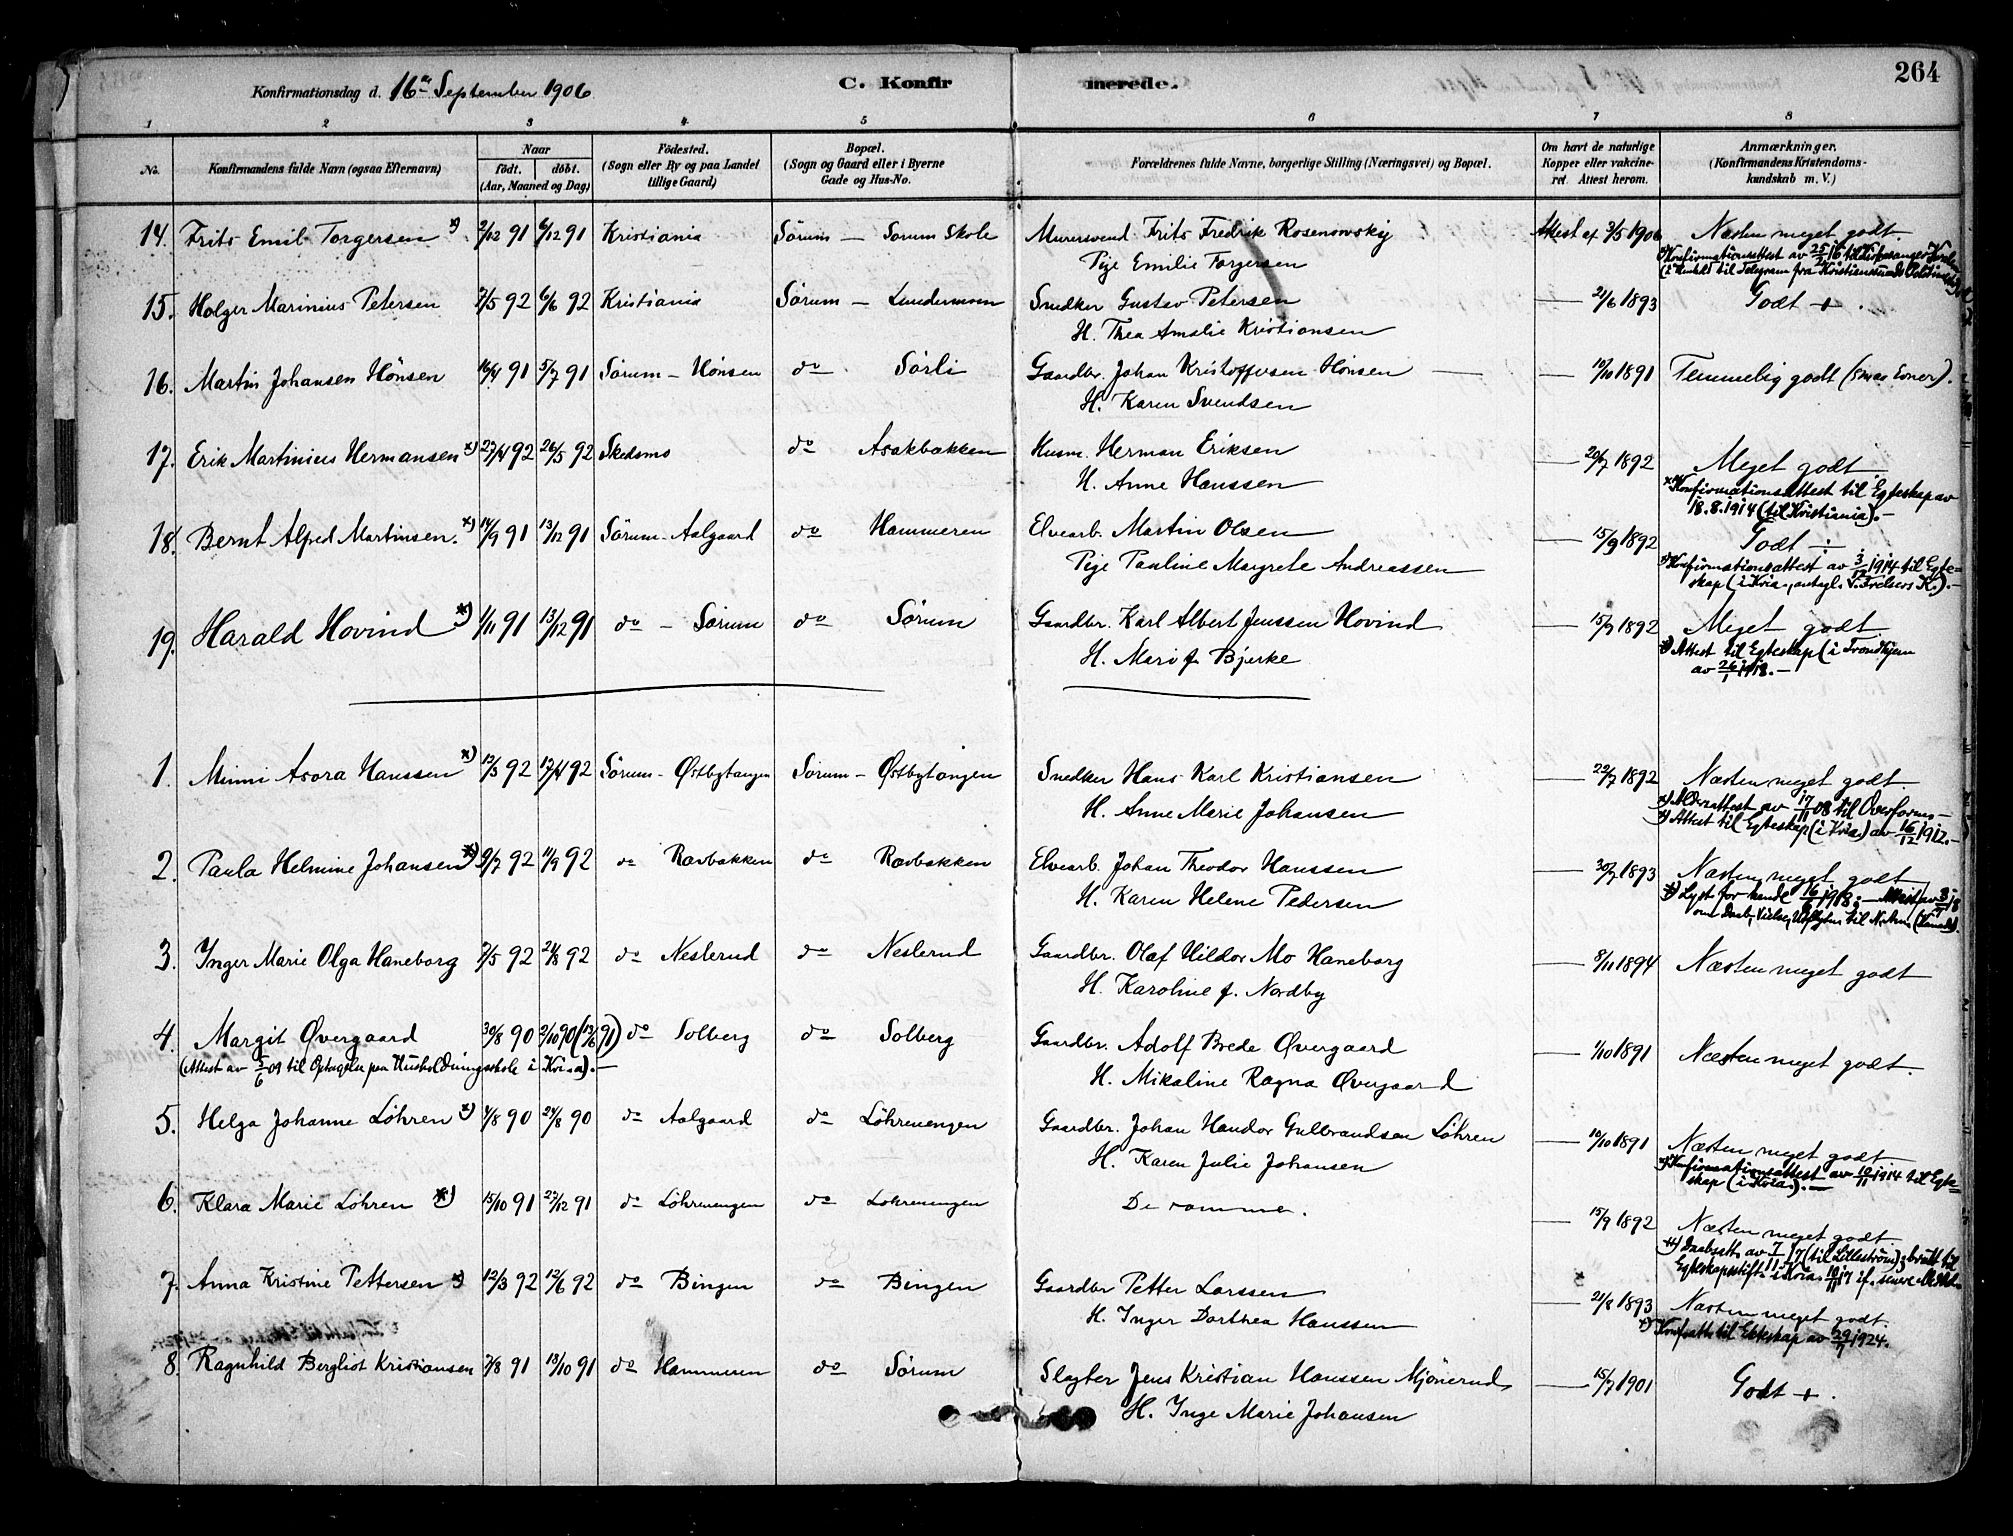 264
Konfirmationsdag d. 16de September 1906
C. Konfirmerede.
1 2 3 4 5 6 7 8
No. Konfirmandens fulde Navn (ogsaa Efternavn) Naar født. døbt. (Aar, Maaned og Dag) Fødested. (Sogn eller By og paa Landet tillige Gaard) Bopæl. (Sogn og Gaard eller i Byerne Gade og Hus-No. Forældrenes fulde Navne, borgerlige Stilling (Næringsvei) og Bopæl. Om havt de naturlige Kopper eller vakcineret. Attest herom. Anmærkninger. (Konfirmandens Kristendomskundskab m. V.)
14. Frits Emil Torgersen x) 2/12 91 6/12 91 Kristiania Sørum — Sørum Skole Murersvend Frits Fredrik Rosensovsky Attest af 3/5 1906 Næsten meget godt.
Pige Emilie Torgersen
15. Holger Marinius Petersen 7/5 92 6/6 92 Kristiania Sørum — Lundermoen Snedker Gustav Petersen — 21/6 1893 Godt +.
H. Thea Amalie Kristiansen
16. Martin Johansen Hönsen 16/4 91 5/7 91 Sørum — Hönsen do Sørli Gaardbr. Johan Kristoffersen Hönsen — 10/10 1891 Temmelig godt (smaa Evner).
H. Karen Svendsen
17. Erik Martinius Hermansen x) 27/4 92 26/5 92 Skedsmo do Asakbakken Husm. Herman Eriksen — 20/7 1892 Meget godt
H. Anne Hanssen
x) Konfirmationsattest til Egteskap av
18.8.1914 (til Kristiania).-
18. Bernt Alfred Martinsen. x) 14/9 91 13/12 91 Sørum - Aalgaard do Hammeren Elvearb. Martin Olsen — 15/9 1892 Godt ÷
Pige Pauline Margrete Andreassen
x) Konfirmationsattest av 3/12 1914 til Egte=
skap (i Kria., antagl. V. Frelsers K.).-
19. Harald Hovind x) 1/11 91 13/12 91 do - Sørum do Sørum Gaardbr. Karl Albert Jenssen Hovind — 15/9 1892 Meget godt
H. Mari f. Bjerke
x) Attest til Egteskap (i Trondhjem
av 26/1 1918.-
1. Minni Asora Hanssen x) 13/3 92 17/4 92 Sørum - Østbytangen Sørum - Østbytangen Snedker Hans Karl Kristiansen — 22/7 1892 Næsten meget godt.
H. Anne Marie Johansen
x) Aldersattest av 17/11 08 til Overform-
x) Attest til Egteskap (i Kria) av 16/12 1912.-
2. Paula Helmine Johansen x) 9/7 92 11/9 92 do Ravbakken do Ravbakken Elvearb. Johan Theodor Hanssen — 30/7 1893 Næsten meget godt
H. Karen Helene Pedersen
3. Inger Marie Olga Haneborg 7/5 92 21/8 92 do Neslerud do Neslerud Gaardbr. Olaf Hildor Mo Haneborg — 8/11 1894 Næsten meget godt
H. Karoline f. Nordby
4. Margit Øvergaard 30/8 90 2/10 90 (13/6 91) do Solberg do Solberg Gaardbr. Adolf Brede Øvergaard — 1/10 1891 Næsten meget godt.
(Attest av 5/6 09 til Optagelse paa Husholdningsskole i Kria).-
H. Mikaline Ragna Øvergaard
5. Helga Johanne Löhren x) 1/8 90 24/8 90 do Aalgaard do Löhrenengen Gaardbr. Johan Handor Gulbrandsen Löhren — 10/10 1891 Næsten meget godt
H. Karen Julie Johansen
x) Konfirmationsattest av 10/11 1914 til Egte=
skap (i Kria.).-
6. Klara Marie Löhren x) 15/10 91 27/12 91 do Löhrenengen do Löhrenengen De samme. — 15/9 1892 Næsten meget godt.
7. Anna Kristine Pettersen x) 12/3 92 12/6 92 do Bingen do Bingen Gaardbr Petter Larssen — 21/8 1893 Næsten meget godt.
H. Inger Dorthea Hanssen
x) Konf.att. til Ekteskap av 29/7 1924.
8. Ragnhild Bergliot Kristiansen 7/8 91 18/10 91 do Hammeren do Sørum Slagter Jens Kristian Hanssen Mjönerud — 15/7 1901 Godt +.
H. Inge Marie Johansen